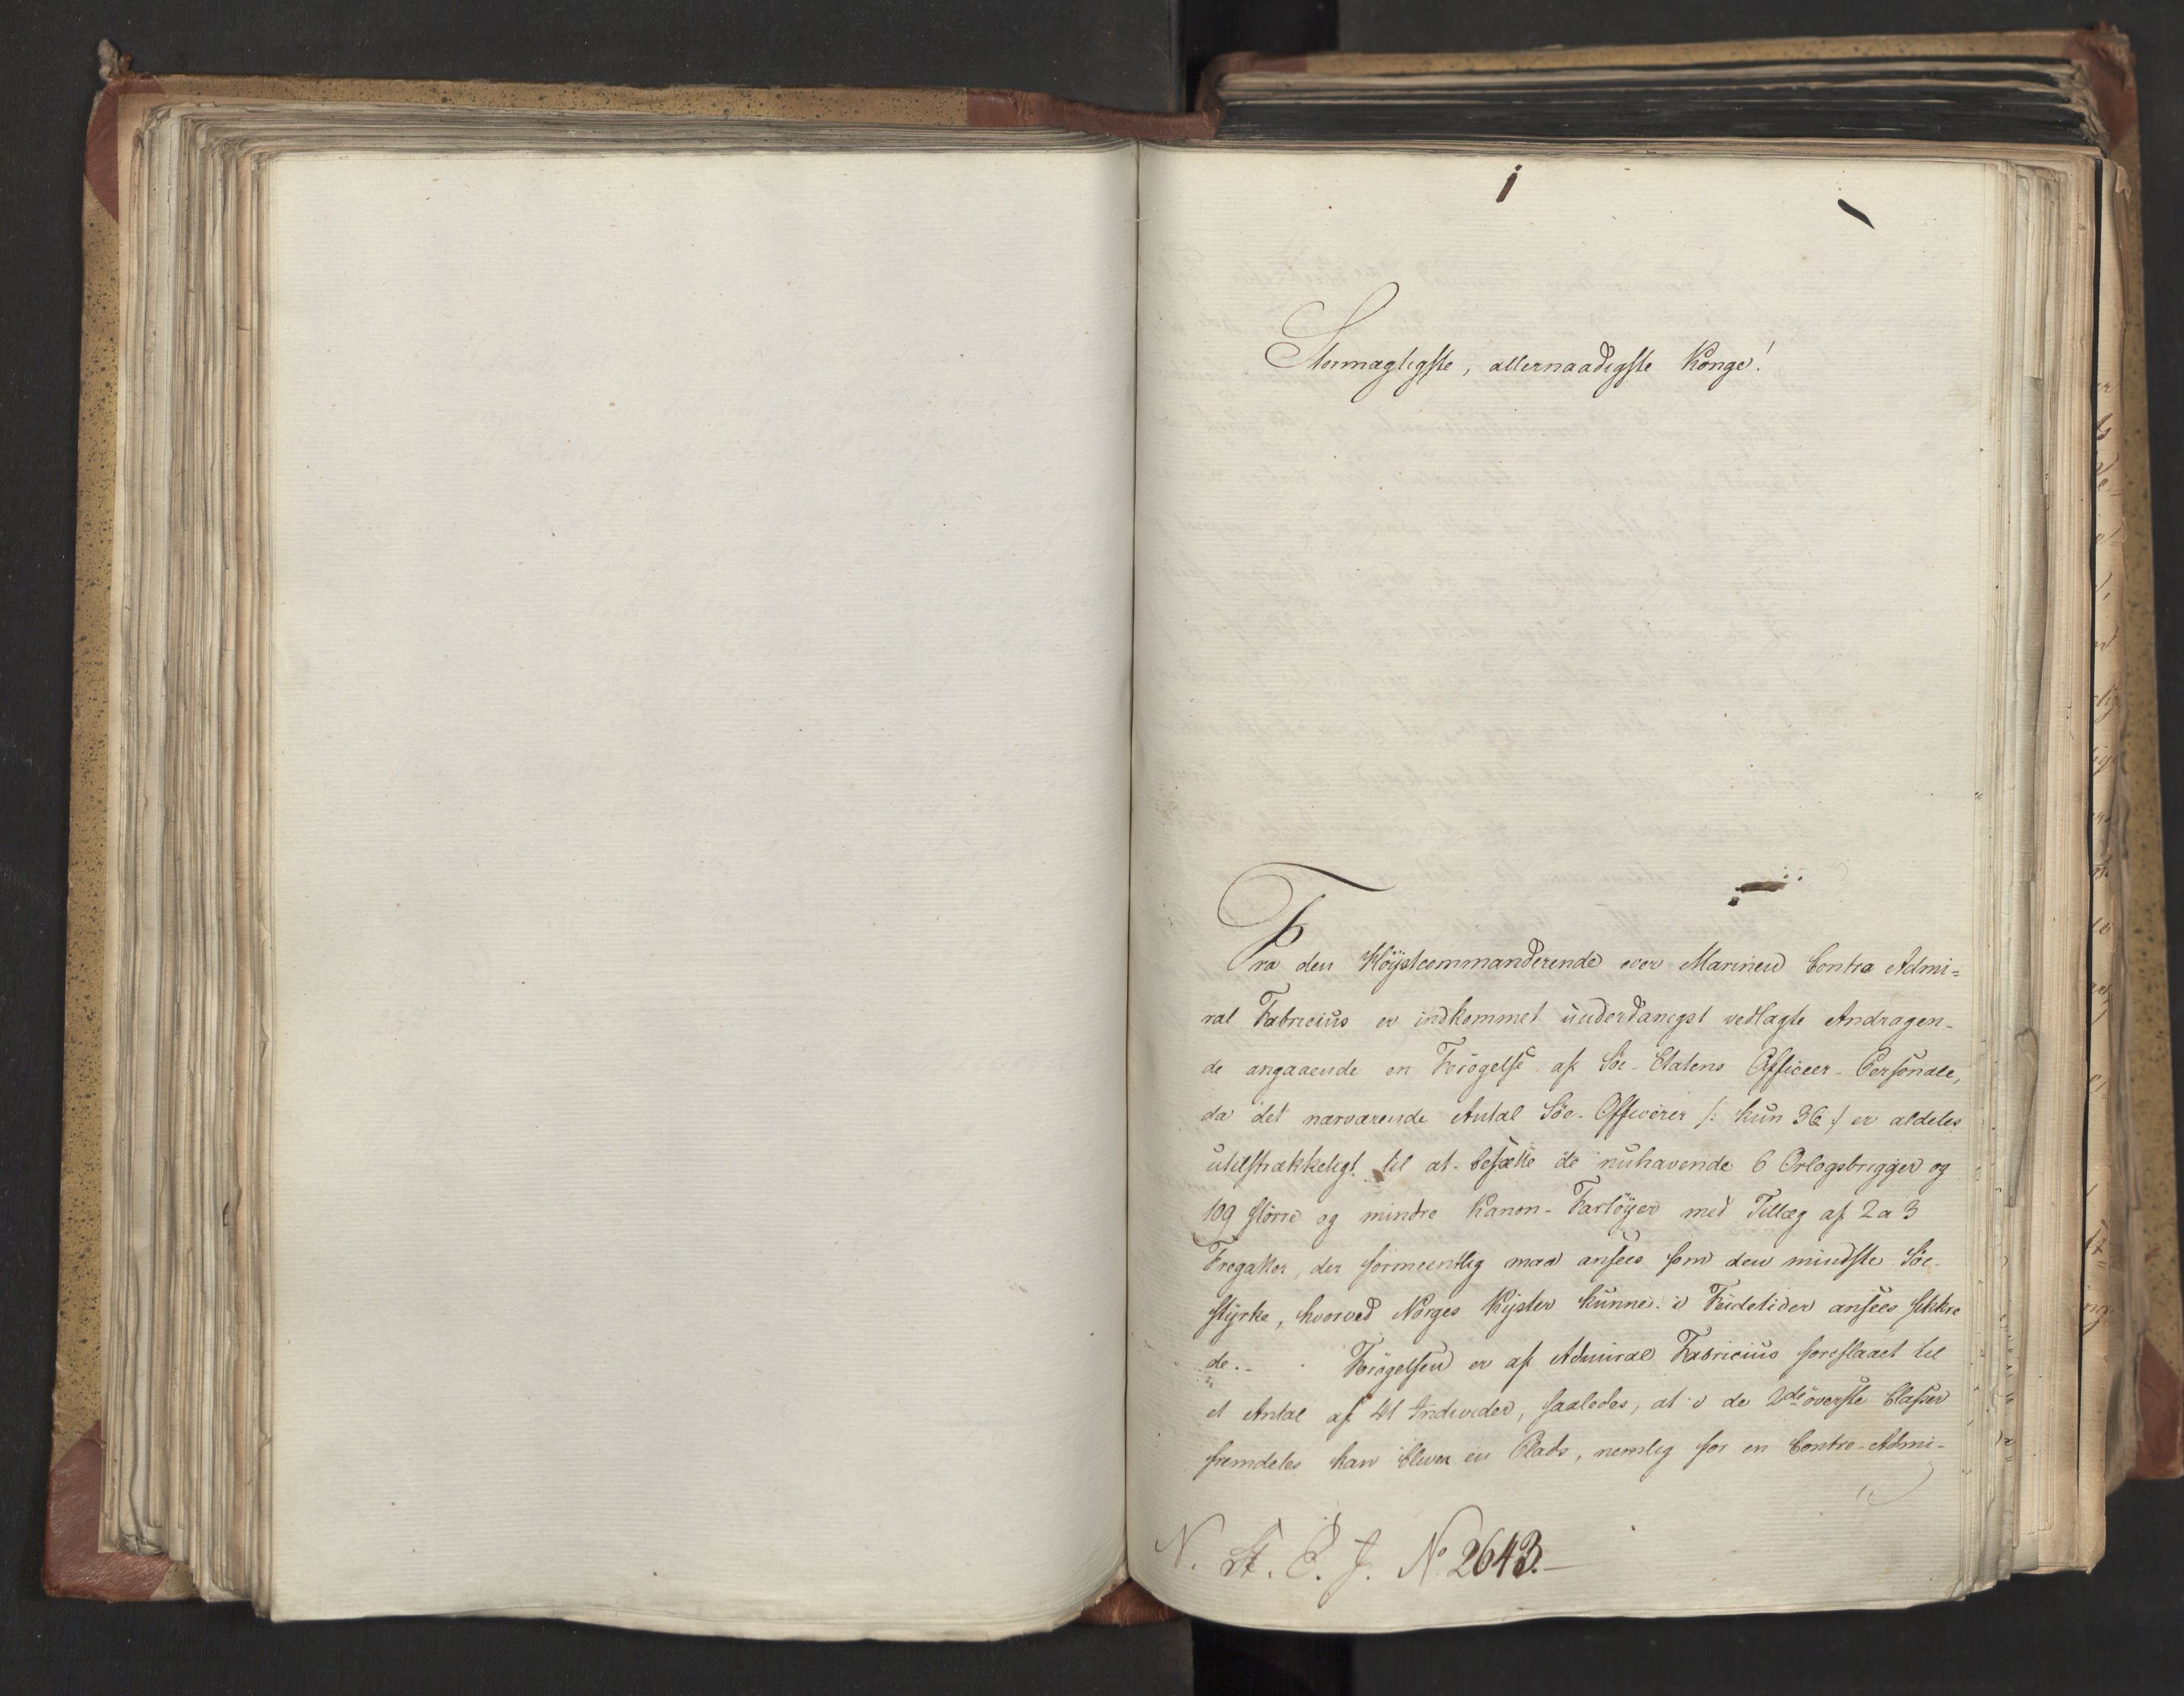 Stormægtigste, allernaadigste Konge!
Fra den Höystcommanderende over Marinen Contra Admi=
ral Fabricius er indkommet underdanigst vedlagte Andragen-
de angaaende en Forögelse af Söe-Etatens Officeer-Personale,
da det nærværende Antal Söe-Officerer /: kun 36 :/ er aldeles
utilstrækkeligt til at besætte de nuhavende 6 Orlogsbrigger og
109 större og mindre Kanon-Fartöyer med Tillæg af 2 a 3
Fregatter, der formeentlig maa ansees som den mindste Söe-
styrke, hvorved Norges Kyster kunne i Feidetider ansees sikkre
de. Forögelsen er af Admiral Fabricius foreslaaet til
et Antal af 41 Individer, saaledes, at i de 2de överste Classer
fremdeles kan bliver en Plads, nemlig for en Contre-Admi-
N. St. E. J. No 2643.